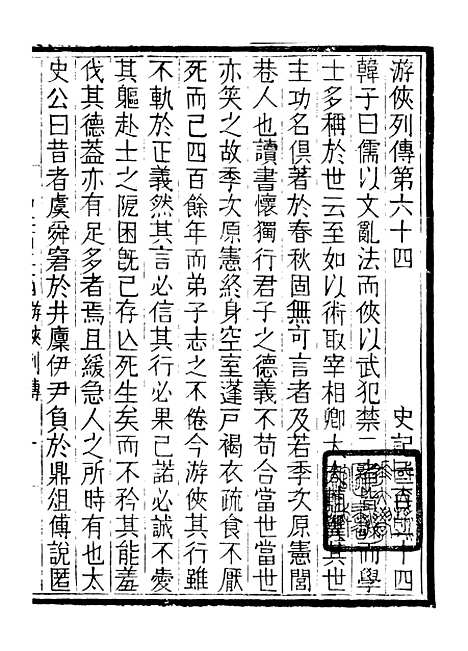 游俠列傳第六十四 史記一百二十四
韓子曰儒以文亂法而俠以武犯禁二者皆譏而學
士多稱於世云至如以術取宰相卿大夫輔翼其世
主功名俱著於春秋固無可言者及若季次原憲閭
巷人也讀書懷獨行君子之德義不苟合當世當世
亦笑之故季次原憲終身空室蓬戶褐衣疏食不厭
死而已四百餘年而弟子志之不倦今游俠其行雖
不軌於正義然其言必信其行必果已諾必誠不愛
其軀赴士之阸困既已存亡死生矣而不矜其能羞
伐其德蓋亦有足多者焉且緩急人之所時有也太
史公曰昔者虞舜窘於井廩伊尹負於鼎俎傅說匿
游俠列傳 一